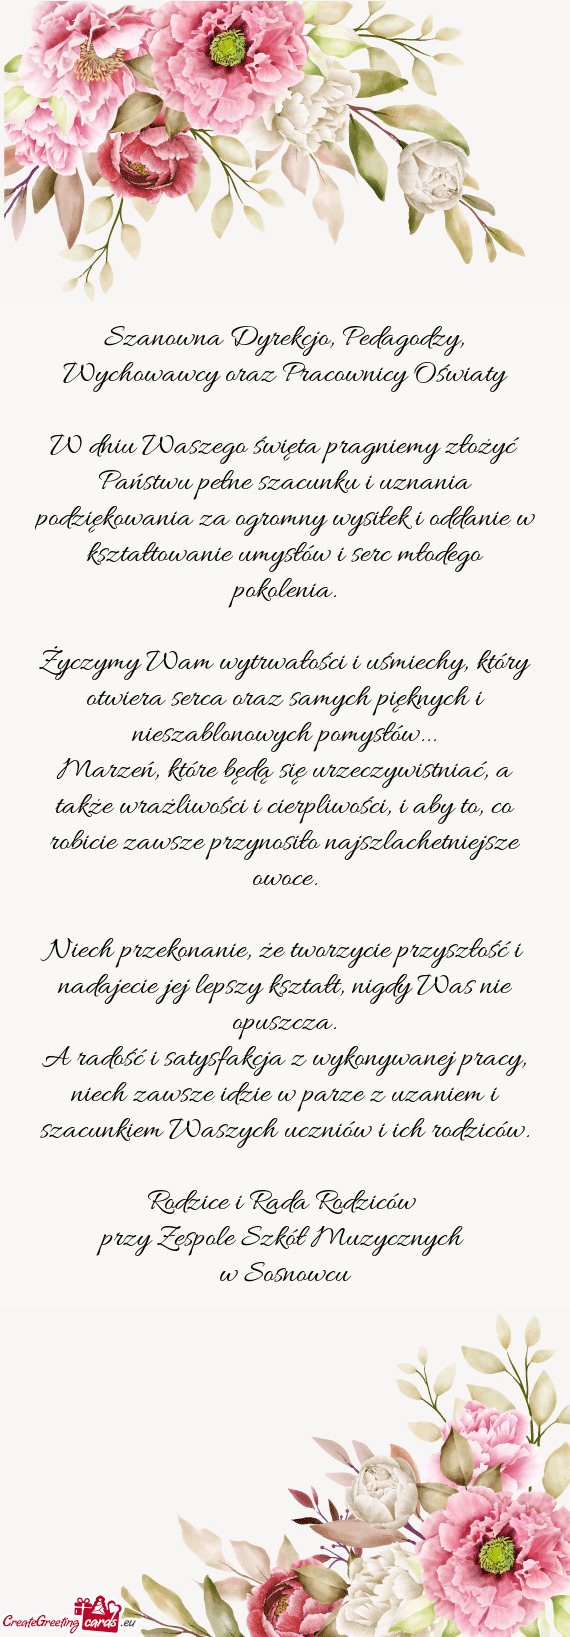 Szanowna Dyrekcjo, Pedagodzy,
Wychowawcy oraz Pracownicy Oświaty
W dniu Waszego święta pragniemy złożyć
Państwu pełne szacunku i uznania
podziękowania za ogromny wysiłek i oddanie w
kształtowanie umysłów i serc młodego
pokolenia.
Życzymy Wam wytrwałości i uśmiechy, który
otwiera serca oraz samych pięknych i
nieszablonowych pomysłów...
Marzeń, które będą się urzeczywistniać, a
także wrażliwości i cierpliwości, i aby to, co
robicie zawsze przynosiło najszlachetniejsze
owoce.
Niech przekonanie, że tworzycie przyszłość i
nadajecie jej lepszy kształt, nigdy Was nie
opuszcza.
A radość i satysfakcja z wykonywanej pracy,
niech zawsze idzie w parze z uzaniem i
szacunkiem Waszych uczniów i ich rodziców.
Rodzice i Rada Rodziców
przy Zespole Szkół Muzycznych
w Sosnowcu
CreateGreeting cards .eu